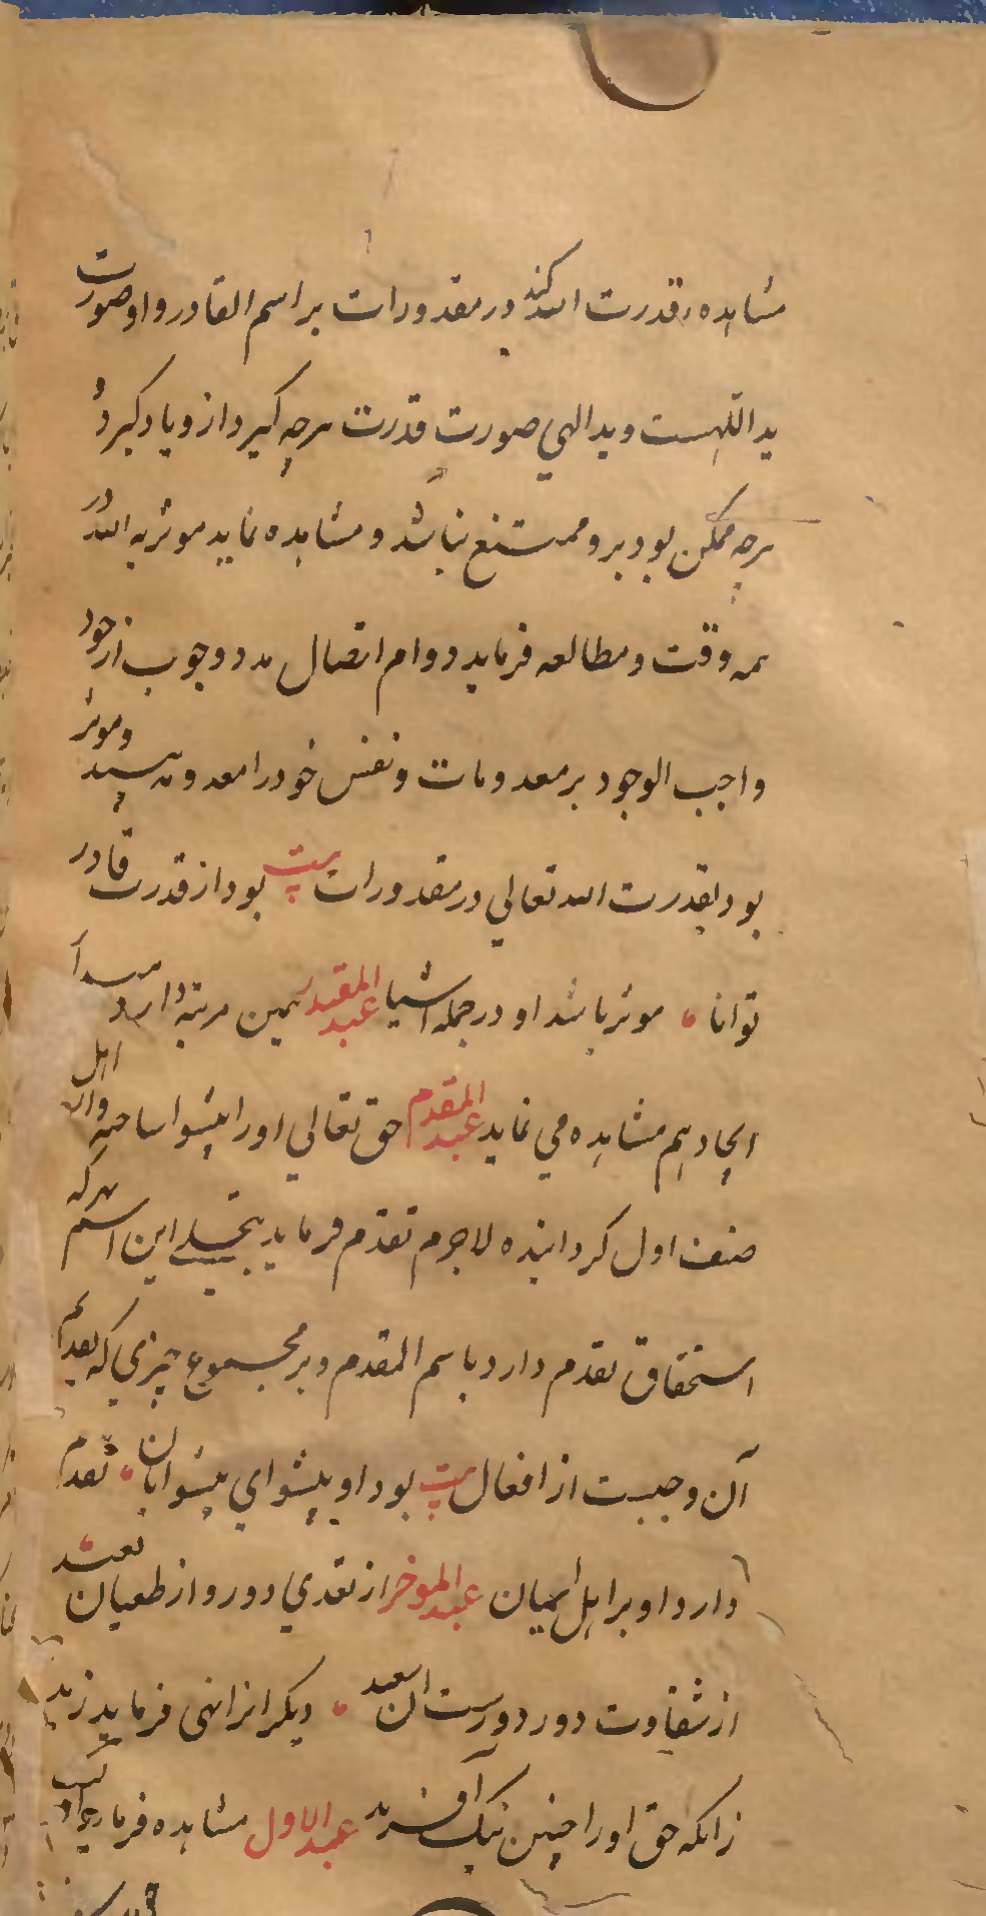 مشاهده قدرت الله کند در مقدورات بر اسم القادر و او صورت
ید اللهست و ید الهی صورت قدرت هرچه گیرد ازو یاد گیرد و
هرچه ممکن بود برو ممتنع نباشد و مشاهده نماید موثریه الله در
همه وقت و مطالعه فرماید دوام اتصال مدد وجوب از جود
واجب الوجود بر معدومات و نفس خود را معدومه بیند و موثر
بود بقدرت الله تعالی در مقدورات بیت بود از قدرت قادر
توانا موثر باشد او در جمله اشیا عبد المقتدر همین مرتبه دارد
ایجاد هم مشاهده می نماید عبد المقدم حق تعالی او را پیشوا ساخته و از اهل
صنف اول گردانیده لاجرم تقدم فرماید بتجلی این اسم هر که
استحقاق تقدم دارد باسم المقدم و بر مجموع چیزی که تقدیم
آن وجبست از افعال بیت بود او پیشوای پیشوایان تقدم
دارد او بر اهل ایمان عبد الموخر از تعدی دور و از طغیان بعید
از شقاوت دور دورست آن سعید دیگرانرا نهی فرماید
زانکه حق او را چنین نیک آفرید عبد الاول مشاهده فرماید